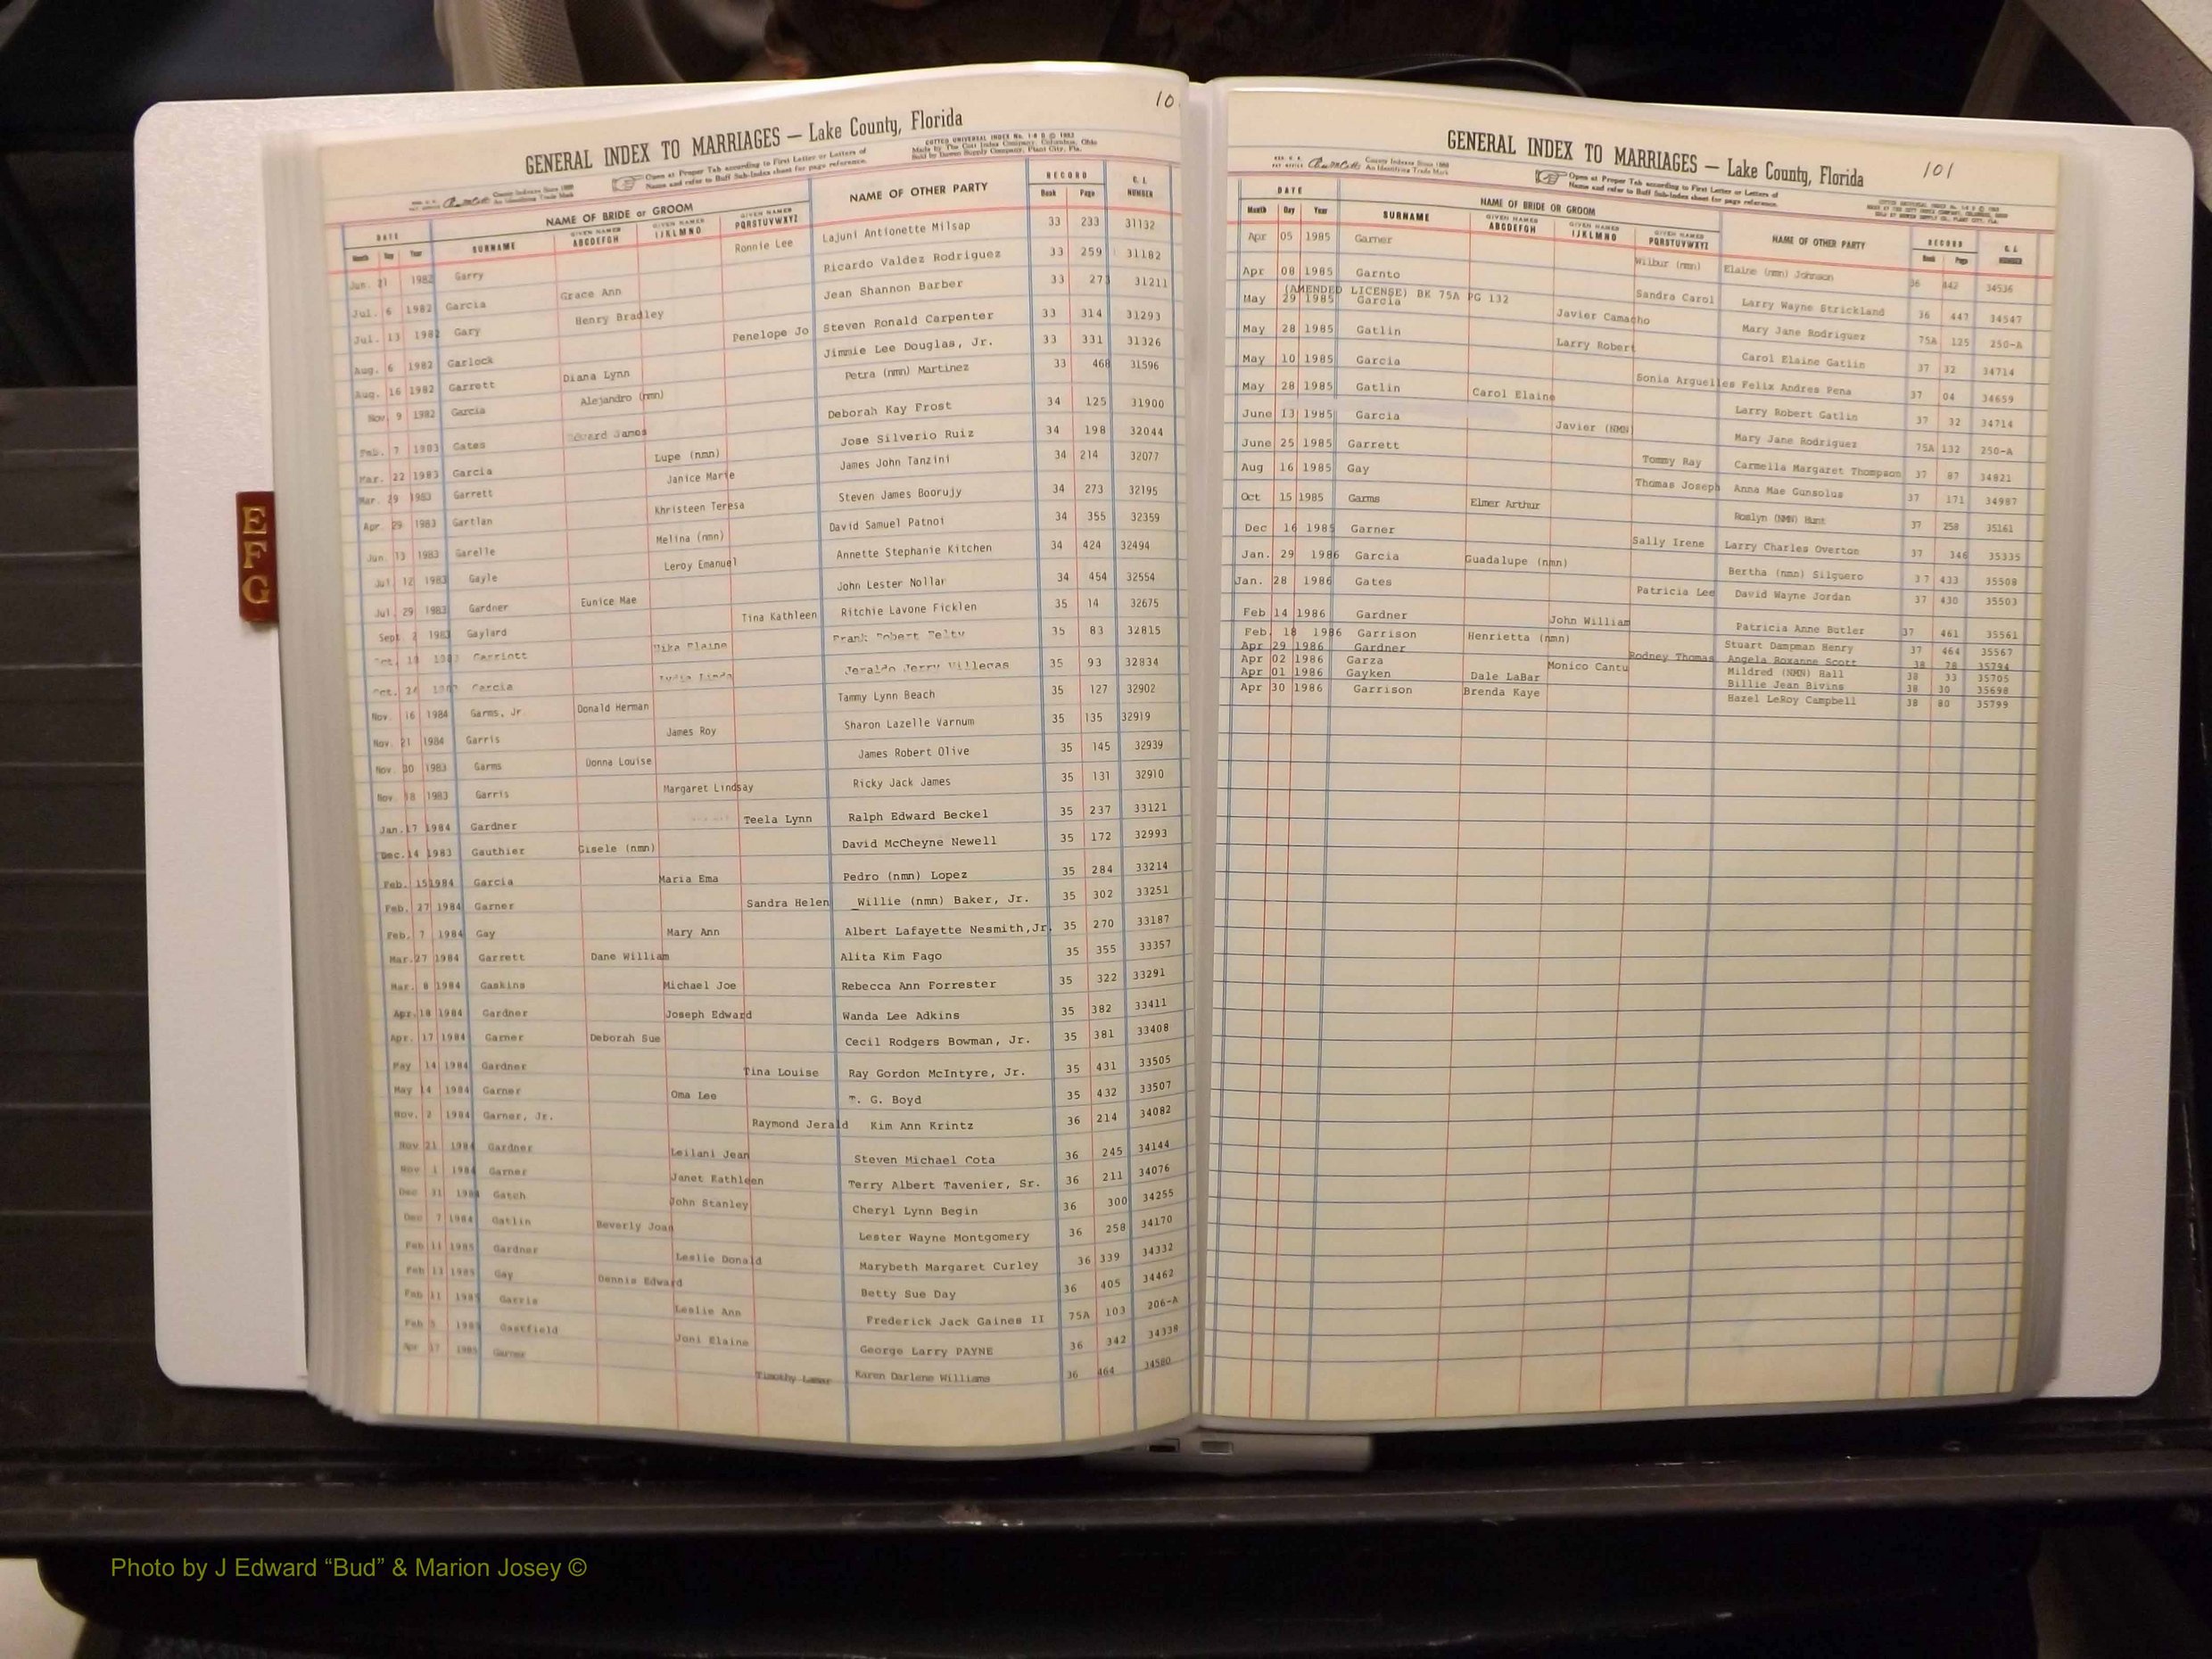 10
GENERAL INDEX TO MARRIAGES — Lake County, Florida
Open at Proper Tab according to First Letter or Letters of
Name and refer to Buff Sub-Index sheet for page reference.
COTTED UNIVERSAL INDEX No. 1-8 D © 1983
Made by The Cott Index Company, Columbus, Ohio
Sold by Dowen Supply Company, Plant City, Fla.
County Indexes Since 1888
An Identifying Trade Mark
DATE NAME OF BRIDE or GROOM NAME OF OTHER PARTY RECORD NUMBER
Month Day Year SURNAME GIVEN NAMES ABCDEFGH GIVEN NAMES IJKLMNO GIVEN NAMES PQRSTUVWXYZ Book Page
Jun. 21 1982 Garry Ronnie Lee Lajuni Antionette Milsap 33 233 31132
Jul. 6 1982 Garcia Grace Ann Ricardo Valdez Rodriguez 33 259 31182
Jul. 13 1982 Gary Henry Bradley Jean Shannon Barber 33 273 31211
Aug. 6 1982 Garlock Penelope Jo Steven Ronald Carpenter 33 314 31293
Aug. 16 1982 Garrett Diana Lynn Jimmie Lee Douglas, Jr. 33 331 31326
Nov. 9 1982 Garcia Alejandro (nmn) Petra (nmn) Martinez 33 468 31596
Feb. 7 1983 Gates Edward James Deborah Kay Frost 34 125 31900
Mar. 22 1983 Garcia Lupe (nmn) Jose Silverio Ruiz 34 198 32044
Mar. 29 1983 Garrett Janice Marie James John Tanzini 34 214 32077
Apr. 29 1983 Gartlan Khristeen Teresa Steven James Boorujy 34 273 32195
Jun. 13 1983 Garelle Melina (nmn) David Samuel Patnoi 34 355 32359
Jul. 12 1983 Gayle Leroy Emanuel Annette Stephanie Kitchen 34 424 32494
Jul. 29 1983 Gardner Eunice Mae John Lester Nollar 34 454 32554
Sept. 2 1983 Gaylard Tina Kathleen Ritchie Lavone Ficklen 35 14 32675
Garriott Elaine Frank Robert Felty 35 83 32815
Garcia Lydia Linda Jeraldo Jerry Villegas 35 93 32834
Nov. 16 1984 Garms, Jr. Donald Herman Tammy Lynn Beach 35 127 32902
Nov. 21 1984 Garris James Roy Sharon Lazelle Varnum 35 135 32919
Nov. 30 1983 Garms Donna Louise James Robert Olive 35 145 32939
Nov. 18 1983 Garris Margaret Lindsay Ricky Jack James 35 131 32910
Jan. 17 1984 Gardner Teela Lynn Ralph Edward Beckel 35 237 33121
Dec. 14 1983 Gauthier Gisele (nmn) David McCheyne Newell 35 172 32993
Feb. 15 1984 Garcia Maria Ema Pedro (nmn) Lopez 35 284 33214
Feb. 27 1984 Garner Sandra Helen _Willie (nmn) Baker, Jr. 35 302 33251
Feb. 7 1984 Gay Mary Ann Albert Lafayette Nesmith,Jr. 35 270 33187
Mar. 27 1984 Garrett Dane William Alita Kim Fago 35 355 33357
Mar. 8 1984 Gaskins Michael Joe Rebecca Ann Forrester 35 322 33291
Apr. 18 1984 Gardner Joseph Edward Wanda Lee Adkins 35 382 33411
Apr. 17 1984 Garner Deborah Sue Cecil Rodgers Bowman, Jr. 35 381 33408
May 14 1984 Gardner Tina Louise Ray Gordon McIntyre, Jr. 35 431 33505
May 14 1984 Garner Oma Lee T. G. Boyd 35 432 33507
Nov. 2 1984 Garner, Jr. Raymond Jerald Kim Ann Krintz 36 214 34082
Nov 21 1984 Gardner Leilani Jean Steven Michael Cota 36 245 34144
Nov 1 1984 Garner Janet Kathleen Terry Albert Tavenier, Sr. 36 211 34076
Dec 31 1984 Gatch John Stanley Cheryl Lynn Begin 36 300 34255
Dec 7 1984 Gatlin Beverly Joan Lester Wayne Montgomery 36 258 34170
Feb 11 1985 Gardner Leslie Donald Marybeth Margaret Curley 36 339 34332
Feb 13 1985 Gay Dennis Edward Betty Sue Day 36 405 34462
Feb 11 1985 Garvie Leslie Ann Frederick Jack Gaines II 75A 103 206-A
Feb 5 1985 Gastfield Joni Elaine George Larry PAYNE 36 342 34338
Apr 17 1985 Garner Timothy Lamar Karen Darlene Williams 36 464 34580
E
F
G
101
GENERAL INDEX TO MARRIAGES — Lake County, Florida
County Indexes Since 1888
An Identifying Trade Mark
Open at Proper Tab according to First Letter or Letters of
Name and refer to Buff Sub-Index sheet for page reference.
DATE NAME OF BRIDE OR GROOM NAME OF OTHER PARTY RECORD NUMBER
Month Day Year SURNAME GIVEN NAMES ABCDEFGH GIVEN NAMES IJKLMNO GIVEN NAMES PQRSTUVWXYZ Book Page
Apr 05 1985 Garner Wilbur (nmn) Elaine (nmn) Johnson 36 442 34536
Apr 08 1985 Garnto Sandra Carol Larry Wayne Strickland 36 447 34547
(AMENDED LICENSE) BK 75A PG 132
May 29 1985 Garcia Javier Camacho Mary Jane Rodriguez 75A 125 250-A
May 28 1985 Gatlin Larry Robert Carol Elaine Gatlin 37 32 34714
May 10 1985 Garcia Sonia Arguelles Felix Andres Pena 37 04 34659
May 28 1985 Gatlin Carol Elaine Larry Robert Gatlin 37 32 34714
June 13 1985 Garcia Javier (NMN) Mary Jane Rodriguez 75A 132 250-A
June 25 1985 Garrett Tommy Ray Carmella Margaret Thompson 37 87 34821
Aug 16 1985 Gay Thomas Joseph Anna Mae Gunsolus 37 171 34987
Oct 15 1985 Garms Elmer Arthur Roslyn (NMN) Hunt 37 258 35161
Dec 16 1985 Garner Sally Irene Larry Charles Overton 37 346 35335
Jan. 29 1986 Garcia Guadalupe (nmn) Bertha (nmn) Silguero 37 433 35508
Jan. 28 1986 Gates Patricia Lee David Wayne Jordan 37 430 35503
Feb 14 1986 Gardner John William Patricia Anne Butler 37 461 35561
Feb. 18 1986 Garrison Henrietta (nmn) Stuart Dampman Henry 37 464 35567
Apr 29 1986 Gardner Rodney Thomas Angela Roxanne Scott 38 78 35794
Apr 02 1986 Garza Monico Cantu Mildred (NMN) Hall 38 33 35705
Apr 01 1986 Gayken Dale LaBar Billie Jean Bivins 38 30 35698
Apr 30 1986 Garrison Brenda Kaye Hazel LeRoy Campbell 38 80 35799
Photo by J Edward “Bud” & Marion Josey ©